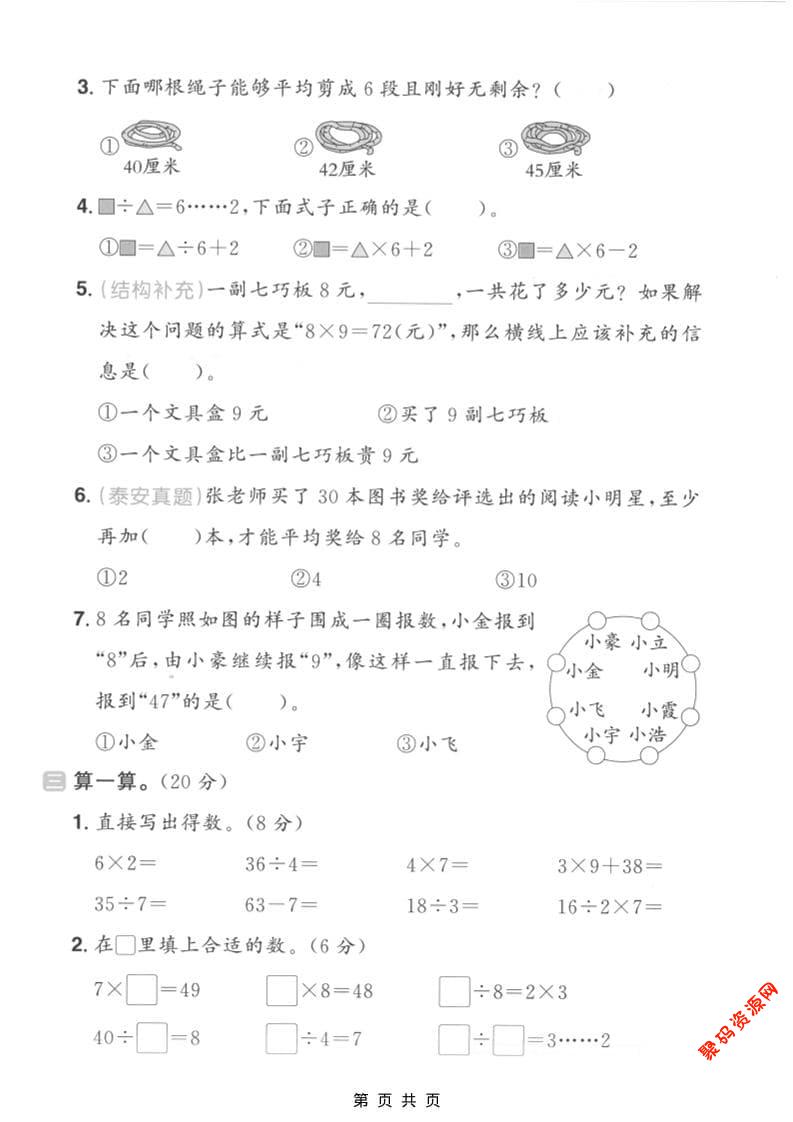 3. 下面哪根绳子能够平均剪成 6 段且刚好无剩余?(    )
① ② ③
40厘米 42厘米 45厘米
4. ■÷△=6……2,下面式子正确的是(    )。
①■=△÷6+2 ②■=△×6+2 ③■=△×6-2
5. (结构补充)一副七巧板 8 元,________,一共花了多少元? 如果解
决这个问题的算式是“8×9=72(元)”,那么横线上应该补充的信
息是(    )。
①一个文具盒 9 元 ②买了 9 副七巧板
③一个文具盒比一副七巧板贵 9 元
6. (泰安真题)张老师买了 30 本图书奖给评选出的阅读小明星,至少
再加(    )本,才能平均奖给 8 名同学。
①2 ②4 ③10
7. 8 名同学照如图的样子围成一圈报数,小金报到
“8”后,由小豪继续报“9”,像这样一直报下去,
报到“47”的是(    )。
①小金 ②小宇 ③小飞
小豪 小立
小金 小明
小飞 小霞
小宇 小浩
三 算一算。(20 分)
1. 直接写出得数。(8 分)
6×2= 36÷4= 4×7= 3×9+38=
35÷7= 63-7= 18÷3= 16÷2×7=
2. 在□里填上合适的数。(6 分)
7×□=49 □×8=48 □÷8=2×3
40÷□=8 □÷4=7 □÷□=3……2
聚码资源网
第 页 共 页